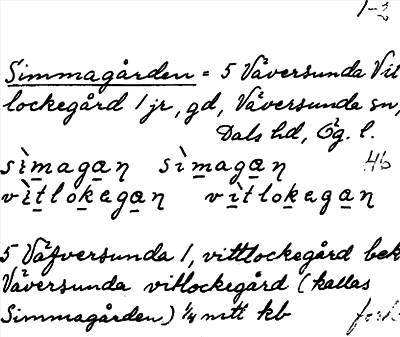 1-2
Simmagården = 5 Väversunda Vit
lockegård 1 jr, gd, Väversunda sn,
Dals hd, Ög. l.
sìmagaη sìmagaη 46
vìtlokagaη vìtlokagaη
5 Väfversunda 1, vittlockegård bek
Väversunda vitlockegård (kallas
Simmagården) 1/4 mtt kb